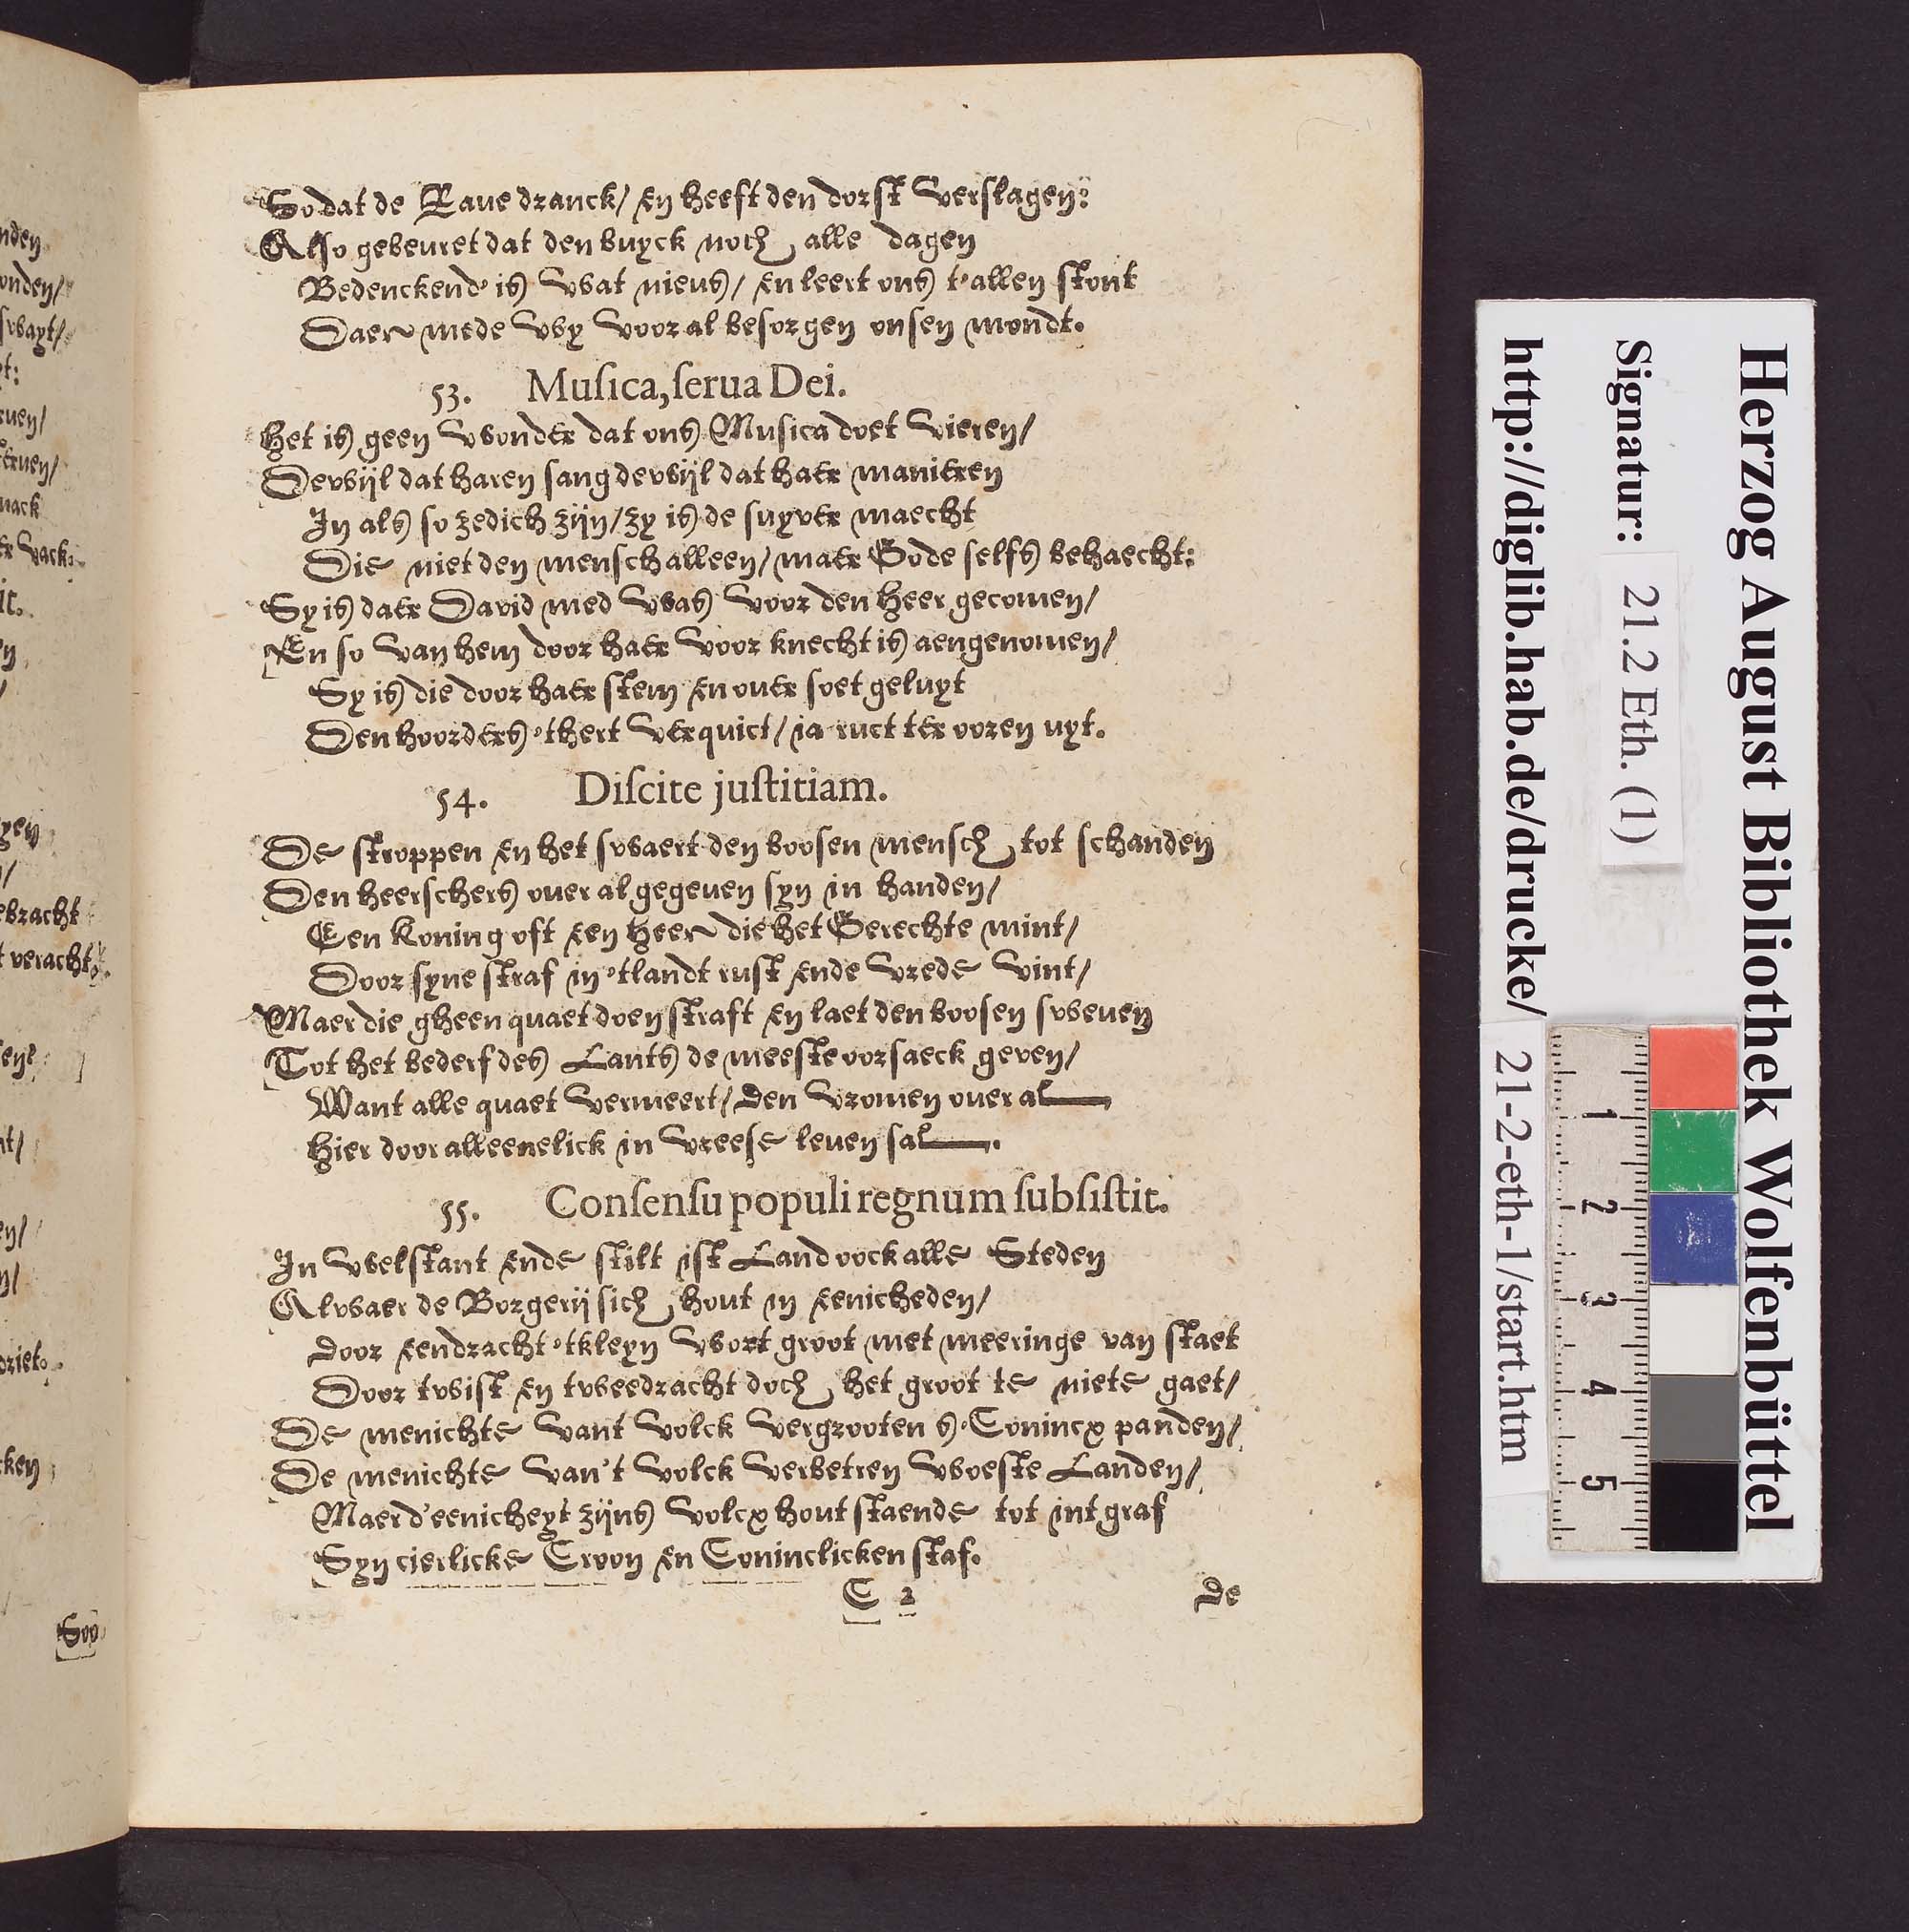 So dat de Raue dranck/ en heeft den dorst verslagen:
Also gebeuret dat den buyck noch alle dagen
Bedenckend' is wat nieus/ en leert ons t'allen stont
Daer mede wy voor al besorgen onsen mondt.
53. Musica, serua Dei.
Het is geen wonder dat ons Musica doet vieren/
Derwijl dat haren sang derwijl dat haer manieren
In als so zedich zijn/ zy is de suyver maecht
Die niet den mensch alleen/ maer Gode selfs behaecht:
Sy is daer David med was voor den Heer gecomen/
En so van hem door haer voor knecht is aengenomen/
Sy is die door haer stem en over soet geluyt
Den hoorders 'thert verquict/ ia ruct ter ooren uyt.
54. Discite justitiam.
De stroppen en het swaert den boosen mensch tot schanden
Den heerschers ouer al gegeuen syn in handen/
Een Koning oft een Heer die het Gerechte mint/
Door syne straf in 'tlandt rust ende vrede vint/
Maer die gheen quaet doen straft en laet den boosen sweuen
Tot het bederf des Lants de meeste oorsaeck geven/
Want alle quaet vermeert/ den vromen ouer al
Hier door alleenelick in vreese leuen sal.
55. Consensu populi regnum subsistit.
In welstant ende stilt ist Land oock alle Steden
Alwaer de Borgerij sich hout in eenicheden/
Door eendracht 'tkleyn wort groot met meeringe van staet
Door twist en tweedracht doch het groot te niete gaet/
De menichte vant volck vergrooten s'Conincx panden/
De menichte van't volck verbetren woeste Landen/
Maer d'eenicheyt zijns volcx hout staende tot int graf
Syn cierlicke Croon en Coninclicken staf.
C 2 De
Soo
Herzog August Bibliothek Wolfenbüttel
Signatur: 21.2 Eth. (1)
http://diglib.hab.de/drucke/ 21-2-eth-1/start.htm
1 2 3 4 5